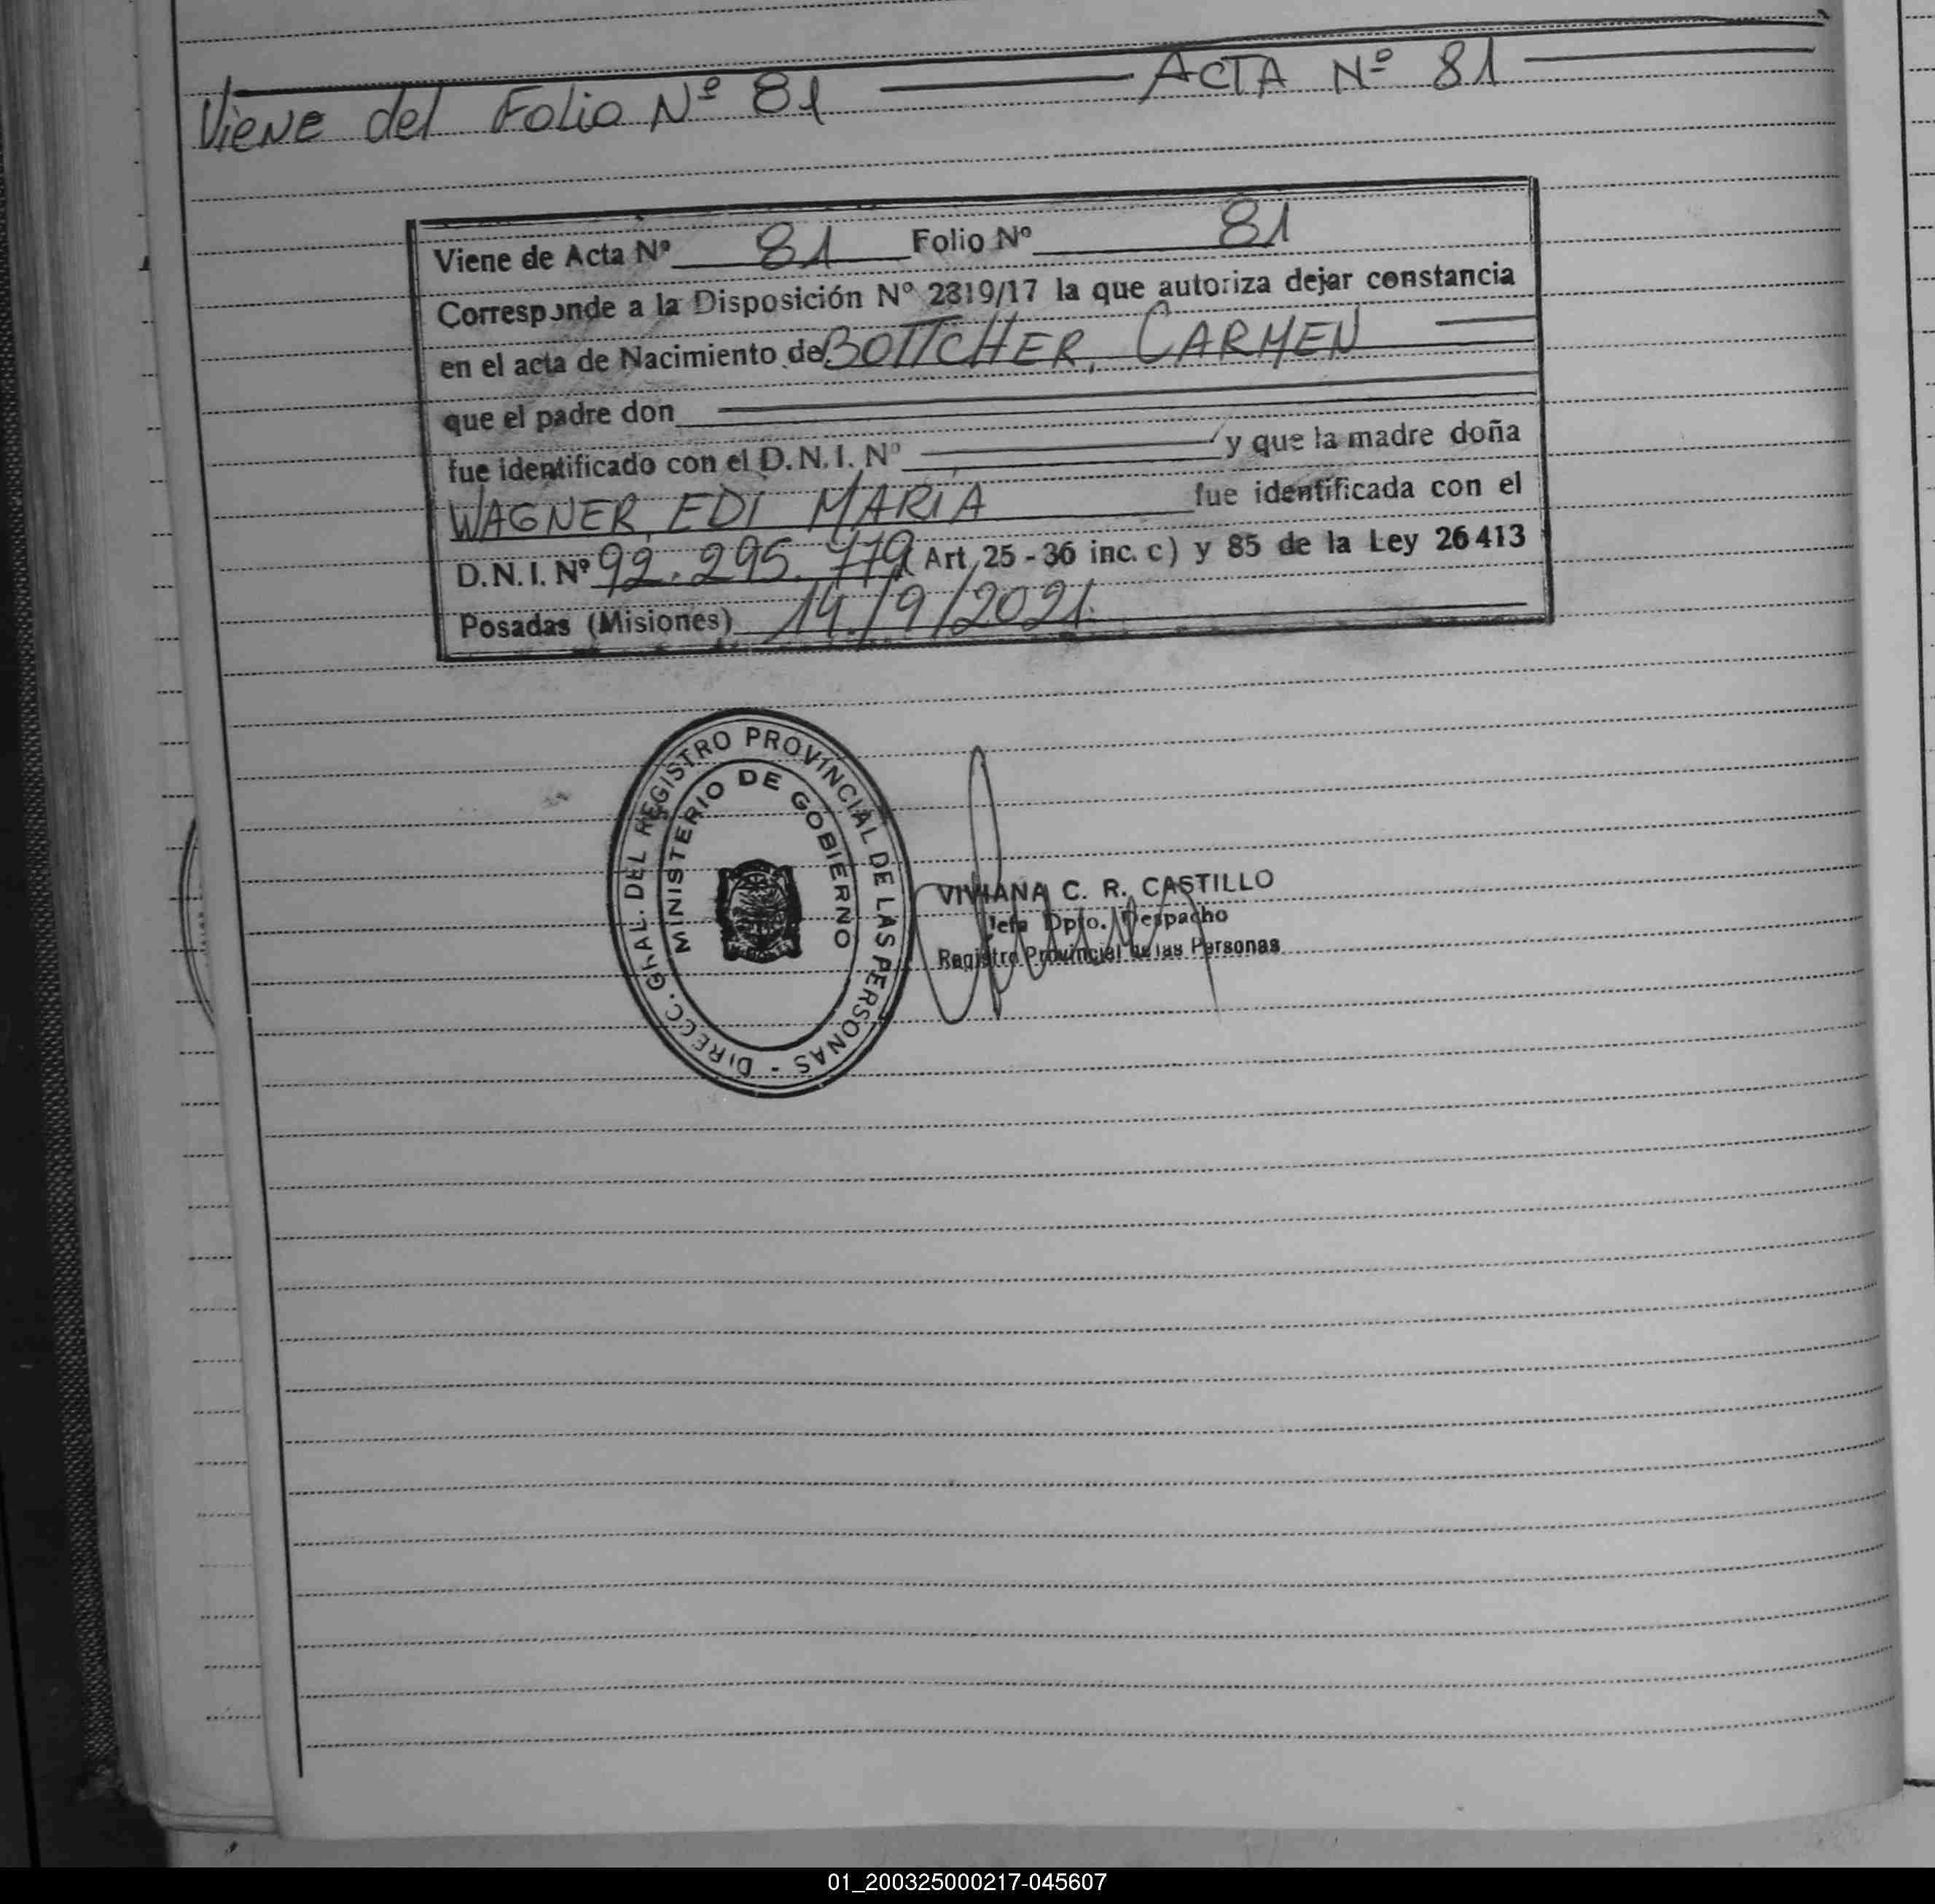 Viene del Folio Nº 81 ACTA Nº 81
Viene de Acta Nº 81 Folio Nº 81
Corresponde a la Disposición Nº 2319/17 la que autoriza dejar constancia
en el acta de Nacimiento de BOTTCHER, CARMEN
que el padre don
fue identificado con el D.N.I. Nº y que la madre doña
WAGNER, EDI MARIA fue identificada con el
D.N.I. Nº 92.295.779 Art. 25 - 36 inc. c) y 85 de la Ley 26413
Posadas (Misiones) 14/9/2021.
DIRECC. GRAL. DEL REGISTRO PROVINCIAL DE LAS PERSONAS -
MINISTERIO DE GOBIERNO
VIVIANA C. R. CASTILLO
Jefa Dpto. Despacho
Registro Provincial de las Personas
01_200325000217-045607